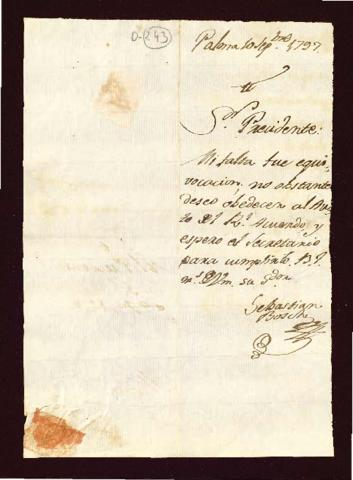 0-243
Palma 10 Sep.bre 1797.
S.or Precidente:
Mi falta fue equi-
vocacion, no obstante
deseo obedecer al Au-
to Dl Rl. Acuerdo, y
espero el Secretario
para cumplirlo. Bl.
m.s sa
Sebastian
Bosch